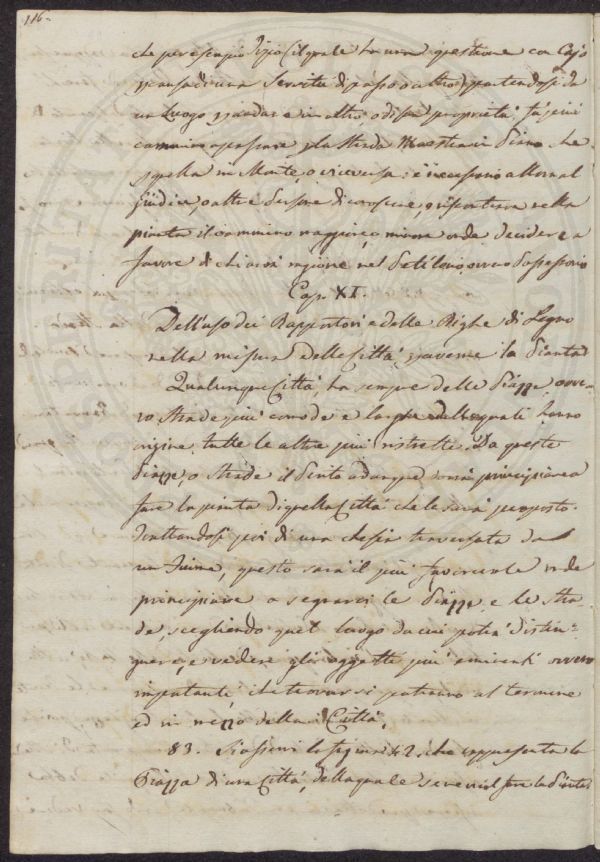 116.
che per esempio Tizio il quale ha una questione con Cajo
per causa di una Servitù di passo o altro, partendosi da
un Luogo p andare in altro o di sua proprietà, fa più
cammino a passare p la strada Maestra in Piano che
p quella in Monte, o viceversa: è necessario allora al
giudice, o altre Persone di conoscere, riportare nella
pianta il cammino maggiore, o minore onde decidere a
favore di chi avrà ragione nel Petitorio ovvero Possessorio
Cap. XI.
Dell'uso dei Rapportori e delle Righe di Legno
nella misura delle Città, p averne la Pianta
Qualunque Città, ha sempre delle Piazze, ovve-
ro strade più comode e larghe dalle quali hanno
origine tutte le altre più ristrette. Da queste
Piazze, o strade il Perito adunque verrà principiare a
fare la pianta di quella Città che le sarà proposto.
Trattandosi poi di una che sia traversata da
un Fiume, questo sarà il più favorevole onde
principiare a segnarci le Piazze, e le stra-
de, scegliendo quel luogo da cui potrà distin-
guere, e vedere gli oggetti più eminenti ovvero
importanti, che trovarsi potranno al termine
ed in mezzo della Città.
83. Si osservi la figura 42. che rappresenta la
Piazza di una Città, della quale se ne vuol fare la Pianta